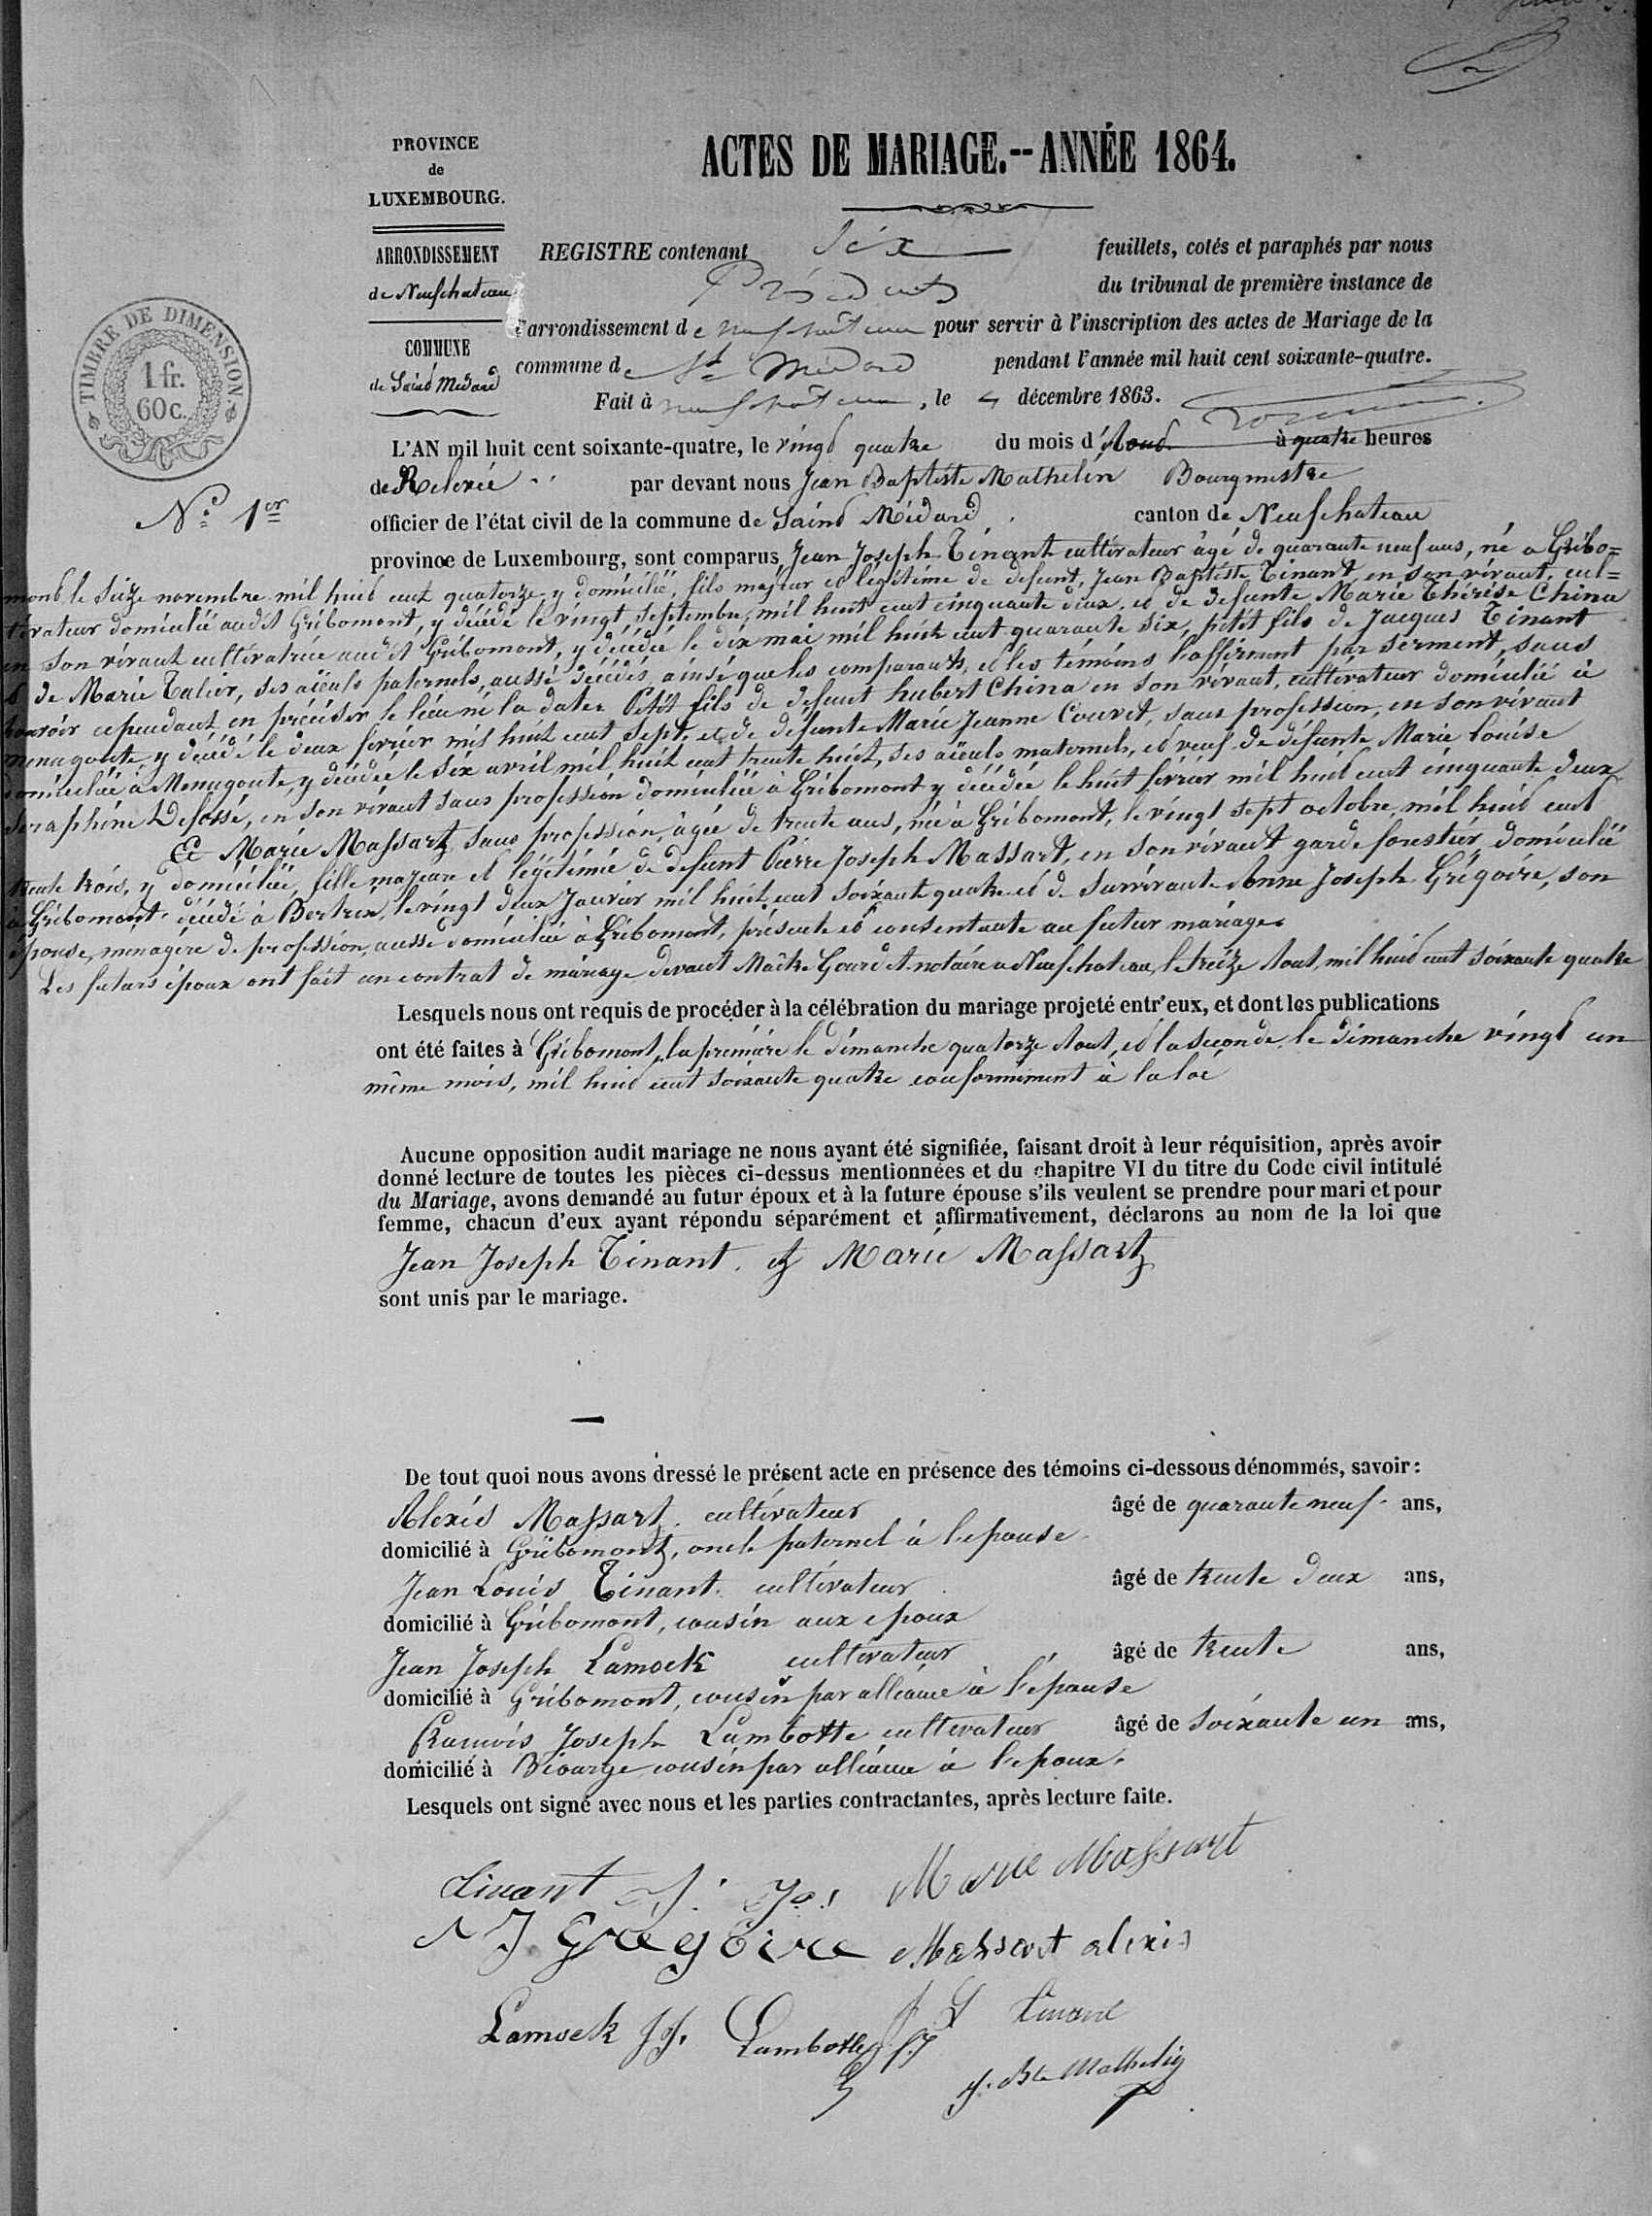 PROVINCE
de
LUXEMBOURG.
ARRONDISSEMENT
de Neufchateau
COMMUNE
de Saind Médard
TIMBRE DE DIMENSION
1 fr.
60 c.
N° 1er
ACTES DE MARIAGE.--ANNÉE 1864.
REGISTRE contenant Six feuillets, cotés et paraphés par nous
Président du tribunal de première instance de
l'arrondissement de neufchâteau pour servir à l'inscription des actes de Mariage de la
commune de St Médard pendant l'année mil huit cent soixante-quatre.
Fait à neufchâteau, le 4 décembre 1863.
L'AN mil huit cent soixante-quatre, le vingd quatre du mois d'Aoud à quatre heures
de Relevée par devant nous Jean Baptiste Mathelin Bourgmestre
officier de l'état civil de la commune de Saind Médard, canton de Neufchateau
province de Luxembourg, sont comparus Jean Joseph Tinant cultivateur âgé de quarante neuf ans, né a Gribo=
mond le seize novembre mil huid cent quatorze, y domicilié, fils majeur et légitime de defunt, Jean Baptiste Tinant en son vivant, cul=
tivateur domicilié audit Gribomont, y décédé le vingt septembre, mil huit cent cinquante deux, et de defunte Marie Thérèse China
en son vivant cultivatrice audit Gribomont, y décédée le dix mai mil huit cent quarante six, petit fils de Jacques Tinant
& de Marie Talier, ses aïeuls paternels, aussi décédés, ainsi que les comparants, et les témoins l'affirment par serment, sans
pouvoir cependant en préciser le lieu ni la date. Petit fils de defunt hubert China en son vivant, cultivateur domicilié à
menugoute, y décédé le deux fevrier mil huit cent sept, et de défunte Marie Jeanne Couvet, sans profession, en son vivant
domiciliée à Menugoute, y décédée le six avril mil huit cent trente huit, ses aïeuls maternels, et veuf de défunte Marie Louise
Seraphine Defossé, en son vivant sans profession domiciliée à Gribomont y décédée le huit février mil huid cent cinquante deux
Et Marie Massart, sans profession, âgée de trente ans, née à Gribomont, le vingt sept octobre, mil huid cent
trente trois, y domiciliée, fille majeure et légitimée de defunt Pierre Joseph Massart, en son vivant garde forestier, domicilié
à Gribomont, décédé à Bertrix, le vingt deux Janvier mil huit cent soixante quatre et de survivante Anne Joseph Grégoire, son
épouse, menagère de profession, aussi domiciliée à Gribomont, présente et consentante au futur mariage.
Les futurs époux ont fait un contrat de mariage devant Maître Gourdet notaire a Neufchateau, le treize Aout, mil huid cent soixante quatre
Lesquels nous ont requis de procéder à la célébration du mariage projeté entr'eux, et dont les publications
ont été faites à Gribomont, la première le dimanche quatorze Aout, et la seconde, le dimanche vingd un
même mois, mil huid cent soixante quatre conformément à la loi
Aucune opposition audit mariage ne nous ayant été signifiée, faisant droit à leur réquisition, après avoir
donné lecture de toutes les pièces ci-dessus mentionnées et du chapitre VI du titre du Code civil intitulé
du Mariage, avons demandé au futur époux et à la future épouse s'ils veulent se prendre pour mari et pour
femme, chacun d'eux ayant répondu séparément et affirmativement, déclarons au nom de la loi que
Jean Joseph Tinant. et Marie Massart
sont unis par le mariage.
De tout quoi nous avons dressé le présent acte en présence des témoins ci-dessous dénommés, savoir:
Alexis Massart. cultivateur âgé de quarante neuf ans,
domicilié à Gribomont, oncle paternel à l'epouse
Jean Louis Tinant. cultivateur âgé de trente deux ans,
domicilié à Gribomont, cousin aux epoux
Jean Joseph Lamock cultivateur âgé de trente ans,
domicilié à Gribomont, cousin par alliance à l'épouse
François Joseph Lambotte cultivateur âgé de soixante un ans,
domicilié à Biourge cousin par alliance à l'epoux.
Lesquels ont signé avec nous et les parties contractantes, après lecture faite.
tinant J. Jos Marie Massart
A J Grégoire Massart alexis
Lamock JJ. Lambotte f. J J L tinant
J. Bte Mathelin